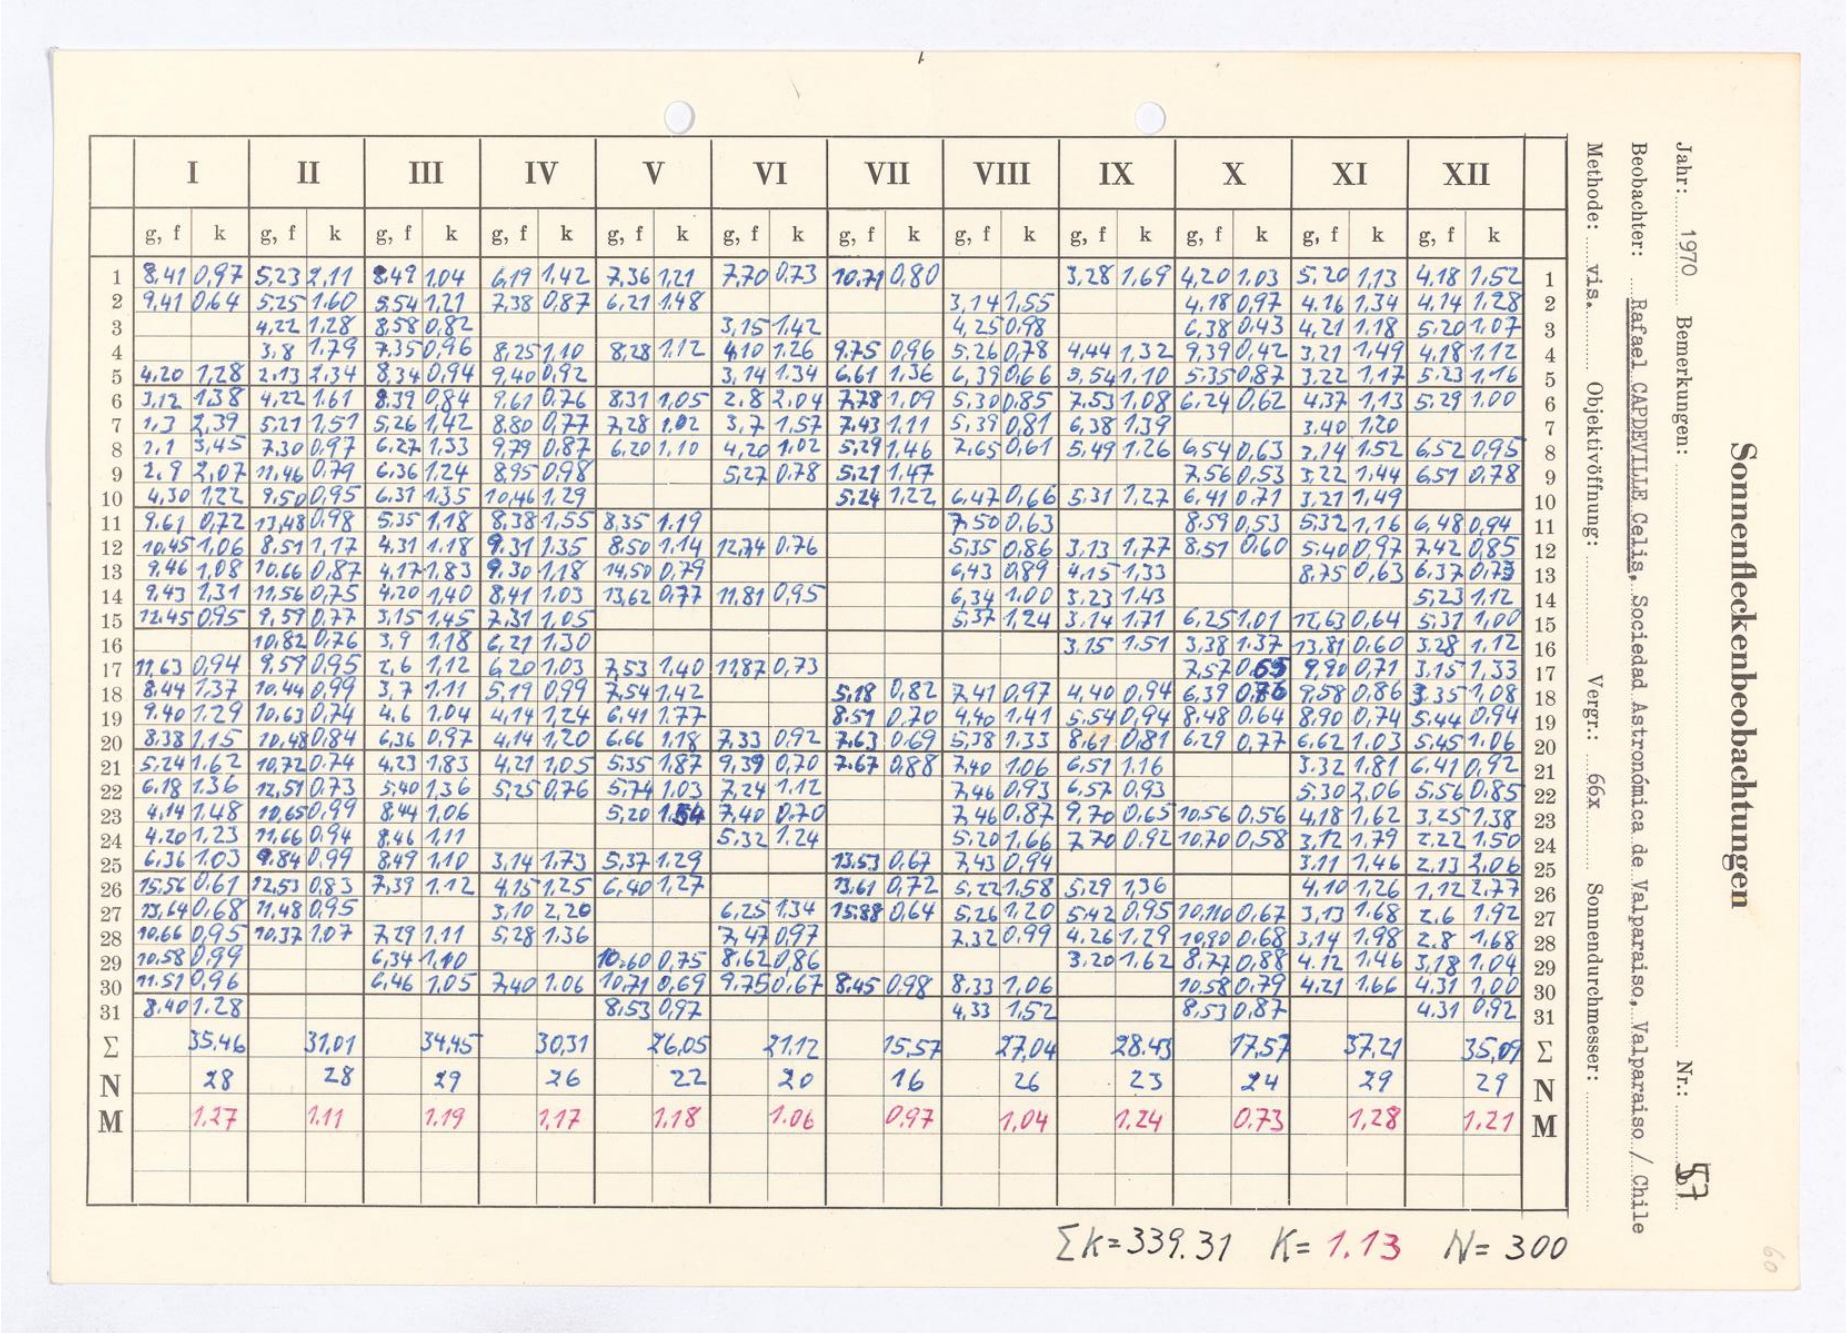 I II III IV V VI VII VIII IX X XI XII
g, f k g, f k g, f k g, f k g, f k g, f k g, f k g, f k g, f k g, f k g, f k g, f k
1 8,41 0,97 5,23 2,11 8,49 1.04 6,19 1,42 7,36 1,21 7,70 0,73 10,71 0,80 3,28 1,69 4,20 1,03 5,20 1,13 4,18 1,52 1
2 9,41 0,64 5,25 1,60 5,54 1,21 7,38 0,87 6,21 1,48 3,14 1,55 4,18 0,97 4,16 1,34 4,14 1,28 2
3 4,22 1,28 8,58 0,82 3,15 1,42 4,25 0,98 6,38 0,43 4,21 1,18 5,20 1,07 3
4 3,8 1,79 7,35 0,96 8,25 1,10 8,28 1,12 4,10 1.26 9,75 0,96 5,26 0,78 4,44 1,32 9,39 0,42 3,21 1,49 4,18 1,12 4
5 4,20 1,28 2,13 2,34 8,34 0,94 9,40 0,92 3,14 1.34 6,61 1,36 6,39 0,66 5,54 1,10 5,35 0,87 3,22 1,17 5,23 1,16 5
6 3,12 1,38 4,22 1,61 8,39 0,84 9,61 0,76 8,31 1,05 2.8 2,04 7,78 1,09 5,30 0,85 7,53 1,08 6,24 0,62 4,37 1,13 5,29 1.00 6
7 1,3 2,39 5,21 1,51 5,26 1,42 8,80 0,77 7,28 1.02 3,7 1,57 7,43 1.11 5,39 0,81 6,38 1,39 3,40 1,20 7
8 2,1 3,45 7,30 0,97 6,27 1,33 9,79 0,87 6,20 1,10 4,20 1,02 5,29 1,46 7,65 0,61 5,49 1,26 6,54 0,63 3,14 1,52 6,52 0,95 8
9 2.9 2,07 11,46 0,79 6,36 1.24 8,95 0,98 5,27 0,78 5,21 1,47 7,56 0,53 3,22 1,44 6,51 0,78 9
10 4,30 1,22 9,50 0,95 6,31 1,35 10,46 1,29 5,24 1,22 6,47 0,66 5,31 1,27 6,41 0,71 3,21 1,49 10
11 9.61 0,72 13,48 0,98 5,35 1,18 8,38 1,55 8,35 1.19 7,50 0,63 8,59 0,53 5,32 1,16 6,48 0,94 11
12 10,45 1,06 8,51 1,17 4,31 1.18 9.31 1.35 8,50 1,14 12,74 0,76 5,35 0,86 3,13 1,77 8,51 0,60 5,40 0,97 7,42 0,85 12
13 9,46 1,08 10,66 0,87 4,17 1.83 9,30 1,18 14,50 0,79 6,43 0,89 4,15 1,33 8,75 0,63 6,37 0,73 13
14 9,43 1,31 11,56 0,75 4,20 1,40 8,41 1.03 13,62 0,77 11,81 0,95 6,34 1.00 3,23 1,43 5,23 1,12 14
15 12.45 0,95 9,59 0,77 3,15 1,45 7,31 1,05 5,37 1,24 3,14 1.71 6,25 1,01 12,63 0,64 5,31 1,00 15
16 10,82 0,76 3,9 1,18 6,21 1,30 3,15 1,51 3,38 1.37 13,81 0,60 3.28 1,12 16
17 11,63 0,94 9,59 0,95 2,6 1,12 6,20 1,03 7,53 1.40 11,87 0,73 7,57 0,65 9,90 0,71 3,15 1,33 17
18 8,44 1,37 10,44 0,99 3,7 1.11 5,19 0,99 7,54 1.42 5,18 0,82 7,41 0,97 4,40 0,94 6,39 0,76 9,58 0,86 3.35 1,08 18
19 9,40 1,29 10,63 0,74 4,6 1.04 4,14 1,24 6,41 1.77 8,51 0,70 4,40 1.41 5,54 0,94 8,48 0,64 8,90 0,74 5,44 0,94 19
20 8.38 1,15 10,48 0,84 6,36 0,97 4,14 1,20 6,66 1,18 7,33 0,92 7,63 0,69 5,38 1,33 8,61 0,81 6,29 0,77 6,62 1.03 5,45 1.06 20
21 5,24 1,62 10,72 0,74 4,23 1,83 4,21 1,05 5,35 1,87 9,39 0,70 7,67 0,88 7,40 1.06 6,51 1.16 3.32 1,81 6.41 0,92 21
22 6.18 1.36 12,51 0,73 5,40 1,36 5,25 0,76 5,74 1,03 7,24 1.12 7,46 0,93 6,57 0,93 5,30 2,06 5,56 0,85 22
23 4,14 1,48 10,65 0,99 8,44 1,06 5,20 1.54 7,40 0,70 7,46 0,87 9,70 0,65 10,56 0,56 4,18 1,62 3,25 1,38 23
24 4,20 1,23 11,66 0,94 8,46 1,11 5,32 1.24 5,20 1,66 7,70 0,92 10,70 0,58 3,12 1,79 2,22 1,50 24
25 6,36 1.03 9,84 0,99 8,49 1,10 3,14 1,73 5,37 1.29 13,53 0,67 7,43 0,94 3,11 1,46 2.13 2,06 25
26 15,56 0,61 12,53 0,83 7,39 1,12 4,15 1,25 6,40 1,27 13,61 0,72 5,22 1,58 5,29 1,36 4,10 1,26 1,12 2,77 26
27 13,64 0,68 11,48 0,95 3,10 2,20 6,25 1,34 15,88 0,64 5,26 1,20 5,42 0,95 10,110 0,67 3,13 1,68 2,6 1.92 27
28 10,66 0,95 10,37 1,07 7,29 1.11 5,28 1,36 7,47 0,97 7.32 0,99 4,26 1.29 10,90 0.68 3,14 1,98 2.8 1,68 28
29 10.58 0,99 6,34 1,10 10,60 0,75 8,62 0,86 3.20 1,62 8,77 0,88 4.12 1,46 3,18 1.04 29
30 11.51 0,96 6,46 1,05 7,40 1.06 10,71 0,69 9,75 0,67 8,45 0,98 8.33 1,06 10,58 0,79 4,21 1.66 4.31 1.00 30
31 8,40 1.28 8,53 0,97 4,33 1,52 8,53 0,87 4.31 0,92 31
Σ 35,46 31,01 34,45 30,31 26,05 21.12 15,57 27,04 28.43 17,57 37,21 35,09 Σ
N 28 28 29 26 22 20 16 26 23 24 29 29 N
M 1.27 1.11 1.19 1,17 1.18 1.06 0,97 1,04 1.24 0.73 1,28 1.21 M
Σk=339.31 K=1.13 N=300
Sonnenfleckenbeobachtungen
Jahr: 1970 Bemerkungen: Nr.: 57
Beobachter: Rafael CAPDEVILLE Celis, Sociedad Astronómica de Valparaiso, Valparaiso / Chile
Methode: vis. Objektivöffnung: Vergr.: 66x Sonnendurchmesser:
60